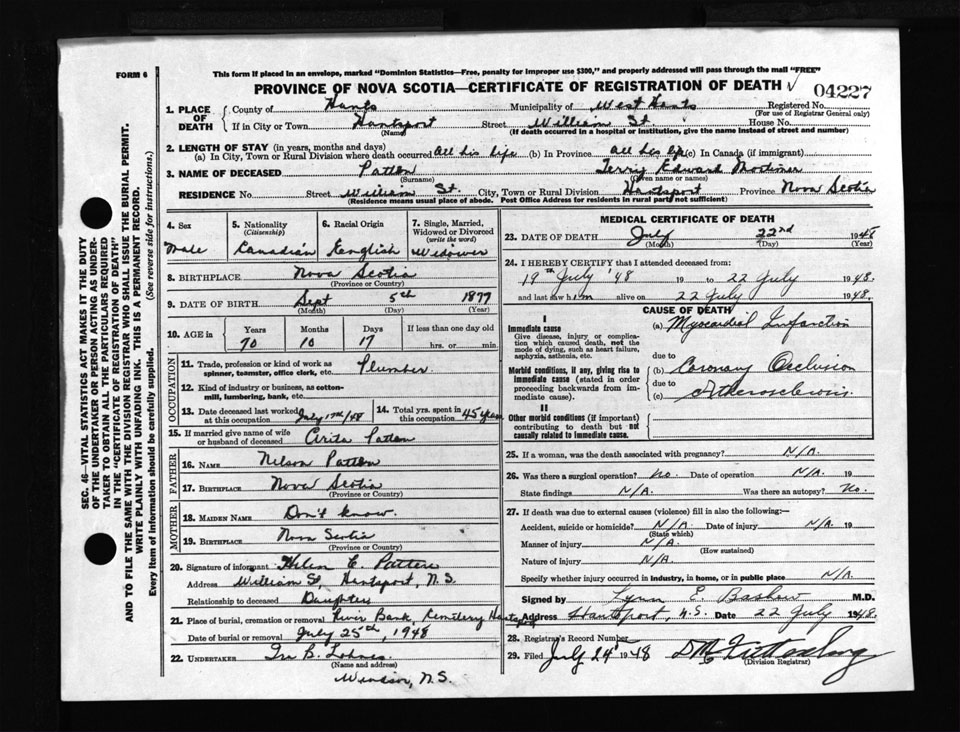 FORM 6
This form if placed in an envelope, marked "Dominion Statistics—Free, penalty for improper use $300," and properly addressed will pass through the mail "FREE"
PROVINCE OF NOVA SCOTIA—CERTIFICATE OF REGISTRATION OF DEATH 04227
1. PLACE OF DEATH
County of Hants Municipality of West Hants Registered No.
(For use of Registrar General only)
If in City or Town Hantsport Street William St. House No.
(Name) (If death occurred in a hospital or institution, give the name instead of street and number)
2. LENGTH OF STAY (in years, months and days)
(a) In City, Town or Rural Division where death occurred All his life (b) In Province All his life (c) In Canada (if immigrant)
3. NAME OF DECEASED Patten Terry Edward Mortimer
(Surname) (Given name or names)
RESIDENCE No. Street William St. City, Town or Rural Division Hantsport Province Nova Scotia
(Residence means usual place of abode. Post Office Address for residents in rural parts not sufficient)
4. Sex Male
5. Nationality (Citizenship) Canadian
6. Racial Origin English
7. Single, Married, Widowed or Divorced (write the word) Widower
8. BIRTHPLACE Nova Scotia
(Province or Country)
9. DATE OF BIRTH Sept 5th 1877
(Month) (Day) (Year)
10. AGE in Years Months Days If less than one day old
70 10 17 hrs. or min.
OCCUPATION
11. Trade, profession or kind of work as spinner, teamster, office clerk, etc. Plumber
12. Kind of industry or business, as cotton-mill, lumbering, bank, etc.
13. Date deceased last worked at this occupation July 17th/48
14. Total yrs. spent in this occupation 45 years
15. If married give name of wife or husband of deceased Arita Patten
FATHER
16. NAME Nelson Patten
17. BIRTHPLACE Nova Scotia
(Province or Country)
MOTHER
18. MAIDEN NAME Don't know.
19. BIRTHPLACE Nova Scotia
(Province or Country)
20. Signature of informant Helen E. Patten
Address William St, Hantsport, N.S.
Relationship to deceased Daughter
21. Place of burial, cremation or removal River Bank, Cemetery Hantsport
Date of burial or removal July 25th, 1948
22. UNDERTAKER Ira B. Lohnes
(Name and address)
Windsor, N.S.
MEDICAL CERTIFICATE OF DEATH
23. DATE OF DEATH July 22nd 1948
(Month) (Day) (Year)
24. I HEREBY CERTIFY that I attended deceased from:
19th July '48 19 to 22 July 1948.
and last saw him alive on 22 July 1948.
CAUSE OF DEATH
I
Immediate cause
Give disease, injury or complication which caused death, not the mode of dying, such as heart failure, asphyxia, asthenia, etc.
(a) Myocardial Infarction
due to
Morbid conditions, if any, giving rise to immediate cause (stated in order proceeding backwards from immediate cause).
(b) Coronary Occlusion
due to
(c) Atherosclerosis
II
Other morbid conditions (if important) contributing to death but not causally related to immediate cause.
25. If a woman, was the death associated with pregnancy? N/A.
26. Was there a surgical operation? No. Date of operation N/A. 19
State findings N/A. Was there an autopsy? No.
27. If death was due to external causes (violence) fill in also the following:—
Accident, suicide or homicide? N/A. Date of injury N/A. 19
(State which)
Manner of injury N/A.
(How sustained)
Nature of injury N/A.
Specify whether injury occurred in industry, in home, or in public place N/A.
Signed by Lynn E. Baslow M.D.
Address Hantsport, N.S. Date 22 July 1948.
28. Registrar's Record Number
29. Filed July 24th 1948
(Division Registrar)
SEC. 46—VITAL STATISTICS ACT MAKES IT THE DUTY
OF THE UNDERTAKER OR PERSON ACTING AS UNDER-
TAKER TO OBTAIN ALL THE PARTICULARS REQUIRED
IN THE "CERTIFICATE OF REGISTRATION OF DEATH"
AND TO FILE THE SAME WITH THE DIVISION REGISTRAR WHO SHALL ISSUE THE BURIAL PERMIT.
WRITE PLAINLY WITH UNFADING INK. THIS IS A PERMANENT RECORD.
Every item of information should be carefully supplied. (See reverse side for instructions.)